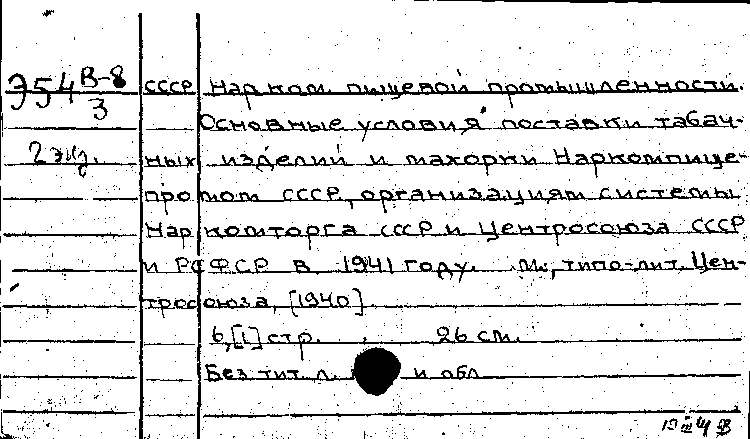 Э54 В-8/3 СССР Нарком. пищевой промышленности.
Основные условия поставки табач-
2 экз. ных изделий и махорки Наркомпище-
промом СССР, организациям системы
Наркомторга СССР и Центросоюза СССР
и РСФСР в 1941 году. М., типо-лит. Цен-
тросоюза, [1940]
6,[1] стр. 26 см.
Без тит. л. и обл